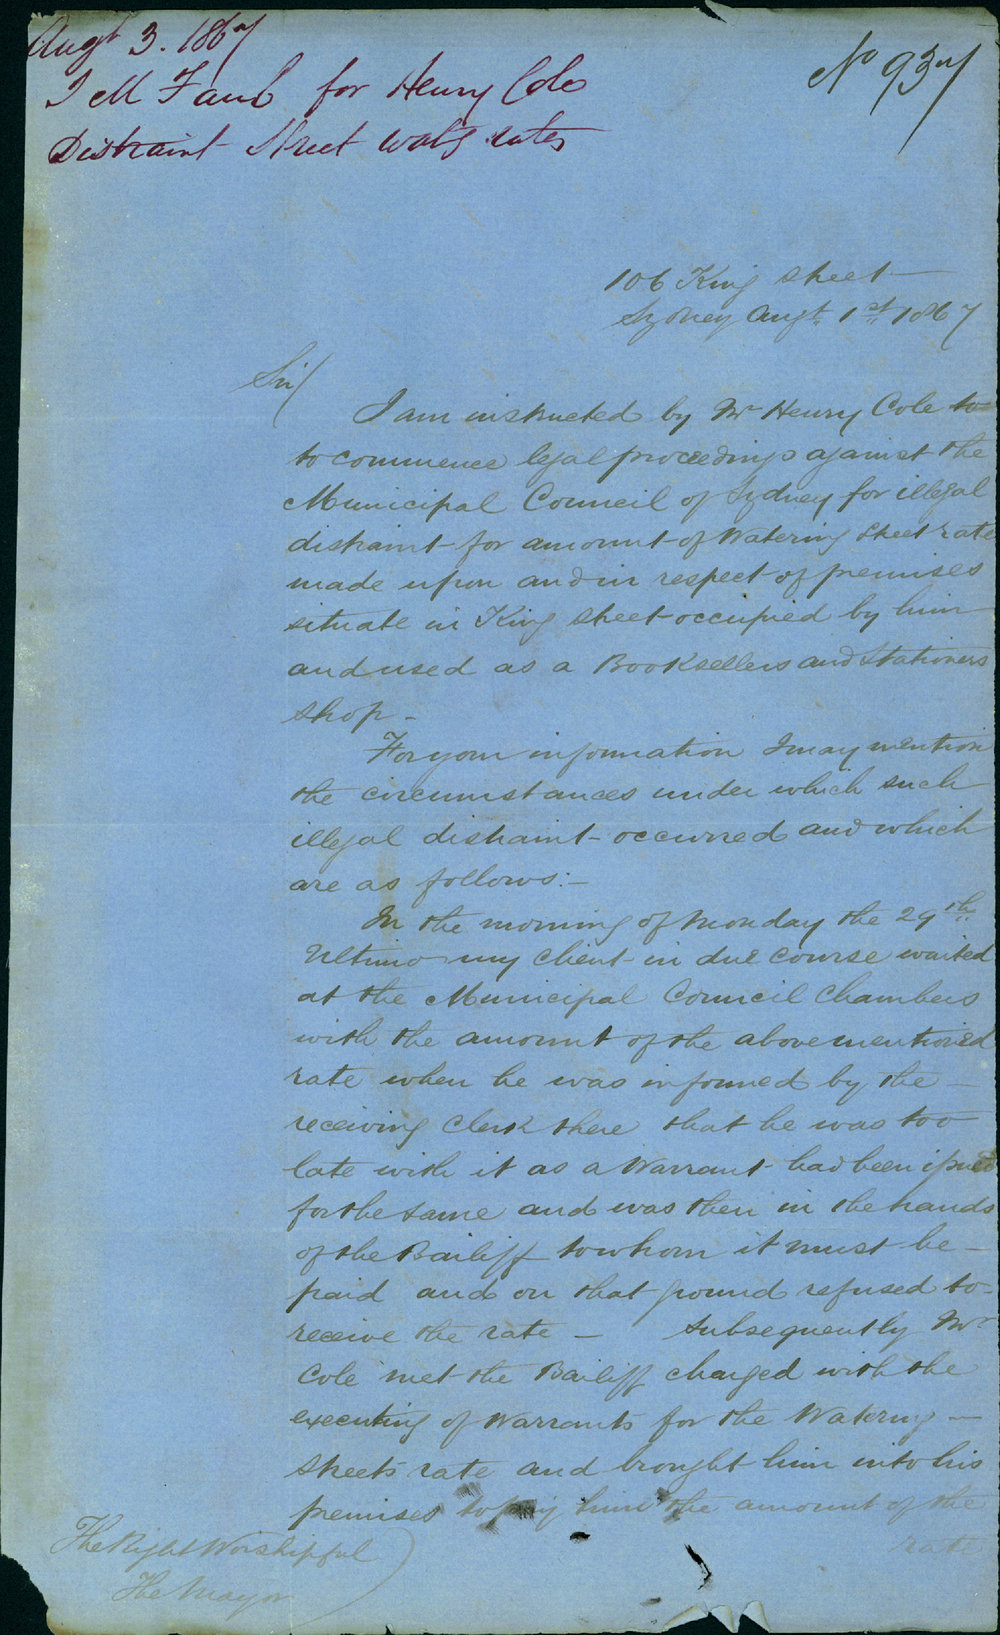 Augt 3. 1867
No 937
J M Faul for Henry Cole
Distraint Street watg rates
106 King street
Sydney Augt. 1st 1867
Sir/
I am instructed by Mr Henry Cole to
to commence legal proceedings against the
Municipal Council of Sydney for illegal
distraint for amount of Watering Street rate
made upon and in respect of premises
situate in King Street occupied by him
and used as a Booksellers and Stationers
shop -
For your information I may mention
the circumstances under which such
illegal distraint occurred and which
are as follows:-
In the morning of Monday the 29th
Ultimo my client in due course waited
at the Municipal Council Chambers
with the amount of the abovementioned
rate when he was informed by the -
receiving Clerk there that he was too
late with it as a Warrant had been issued
for the same and was then in the hands
of the Bailiff to whom it must be -
paid and on that ground refused to -
receive the rate - Subsequently Mr
Cole met the Bailiff charged with the
executing of Warrants for the Watering -
Streets rate and brought him into his
premises to pay him the amount of the
rate
The Right Worshipful
The Mayor